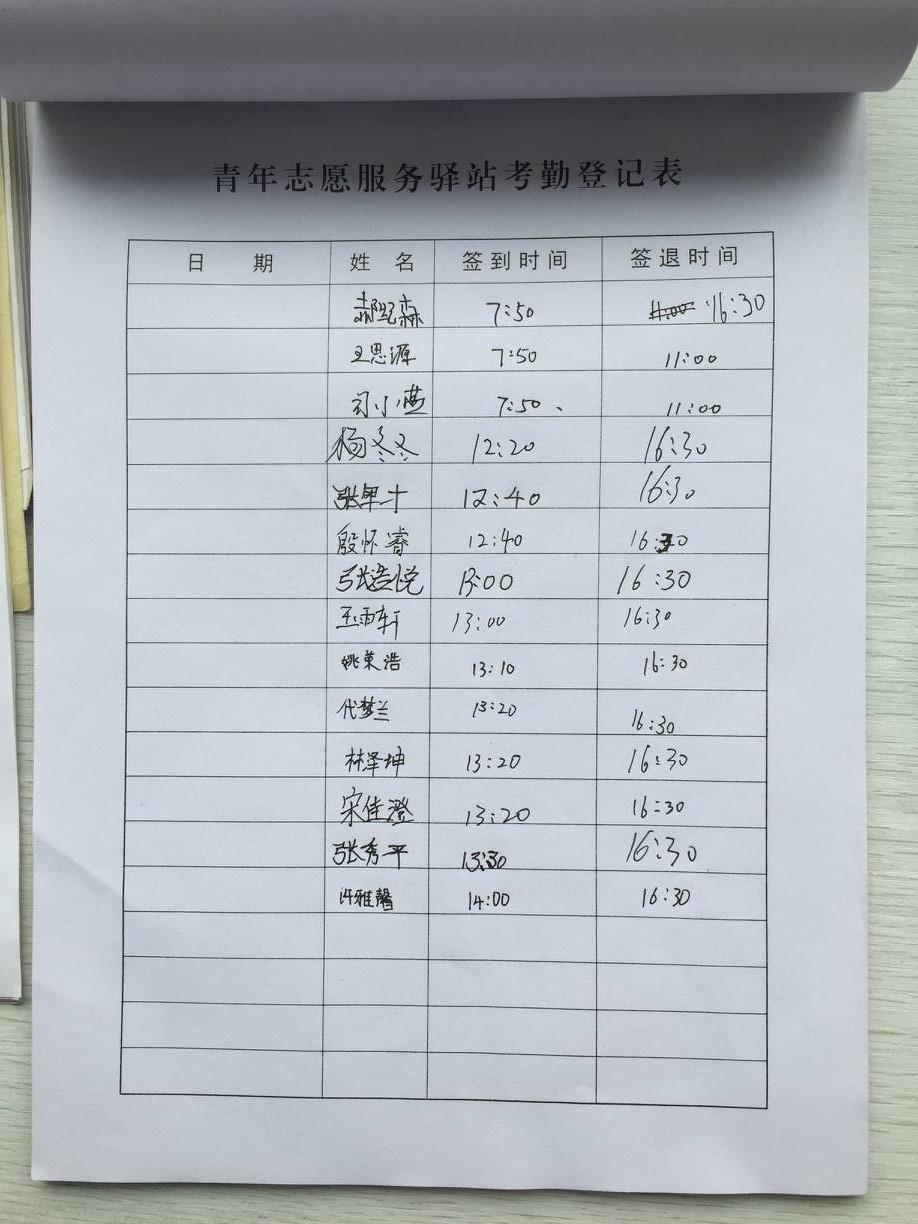 青年志愿服务驿站考勤登记表
日 期 姓 名 签到时间 签退时间
郝纪森 7:50 11:00 16:30
王思源 7:50 11:00
司小燕 7:50 11:00
杨冬冬 12:20 16:30
张 12:40 16:30
殷怀睿 12:40 16:30
张浩悦 13:00 16:30
王雨轩 13:00 16:30
姚荣浩 13:10 16:30
代梦兰 13:20 16:30
林泽坤 13:20 16:30
宋佳澄 13:20 16:30
张秀平 13:30 16:30
许雅馨 14:00 16:30